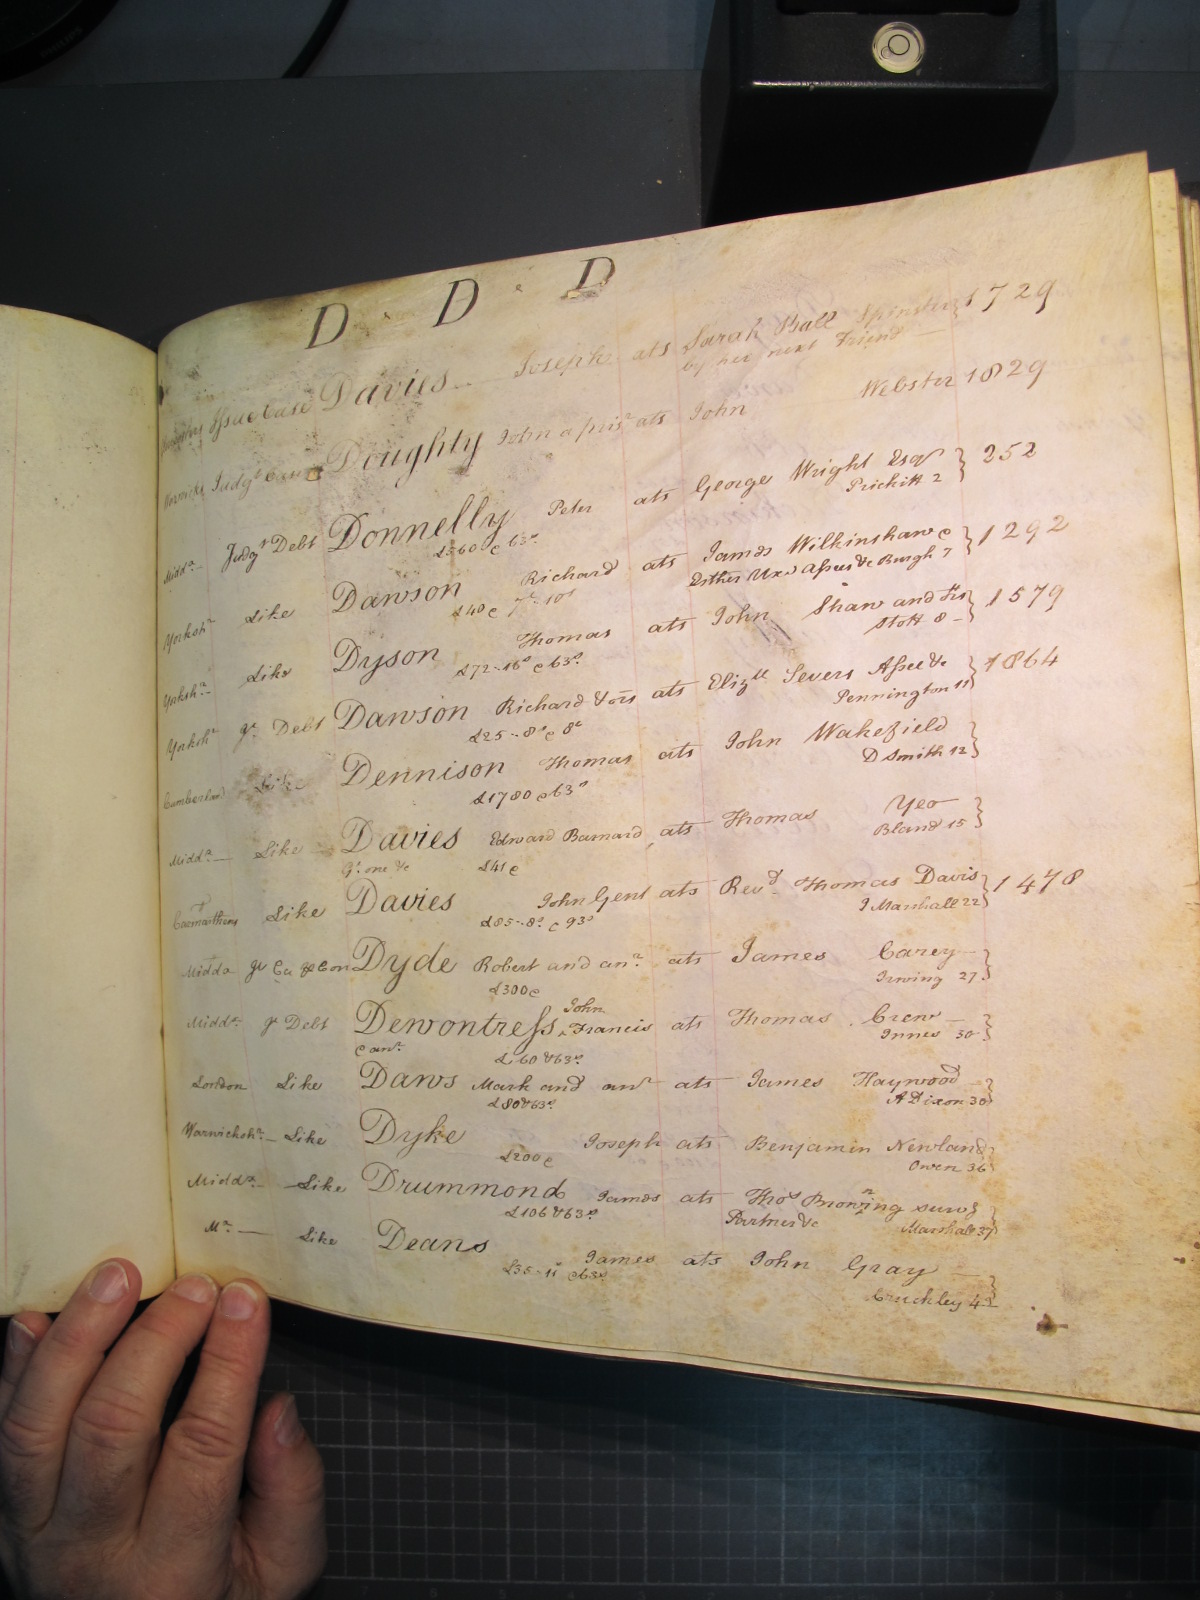 D . D . D
Issue Case Davies Joseph ats Sarah Ball Spinster } 1729
by her next Friend
Warwicksh Judgt Case Doughty John a prisr ats John Webster 1829
Middx Judgt Debt Donnelly Peter ats George Wright Esqr } 252
£360 & 63s Prickitt 2
Yorkshr Like Dawson Richard ats James Wilkinshaw & } 1292
£40 & Esther Uxr Assees &c Burgh 7
Yorkshr Like Dyson Thomas ats John Shaw and ors } 1579
£72-16s & 63s Stott 8
Yorkshr gr Debt Dawson Richard & ors ats Elizth Severs Assee &c } 1864
£25-8s & 8s Pennington 11
Cumberland Like Dennison Thomas ats John Wakefield }
£1780 & 63s D Smith 12
Middx Like Davies Edward Barnard ats Thomas Yeo }
gt one &c £41 & Bland 15
Caermarthens Like Davies John Gent ats Revd Thomas Davis } 1478
£85-8s & 93s J Marshall 22
Middx gr Ca Dyde Robert and anr ats James Carey }
£300 & Irwing 27
John
Middx gr Debt Dewontress Francis ats Thomas Crew }
& anr £60 & 63s Innes 30
London Like Daws Mark and anr ats James Haywood }
£80 & 63s A Dixon 30
Warwickshr Like Dyke Joseph ats Benjamin Newland }
£200 & Owen 36
Middx Like Drummond James ats Thos Browning survg }
£106 & 63s Partner &c Marshall 37
Mx Like Deans James ats John Gray }
£35-11s & 63s Cruckley 42